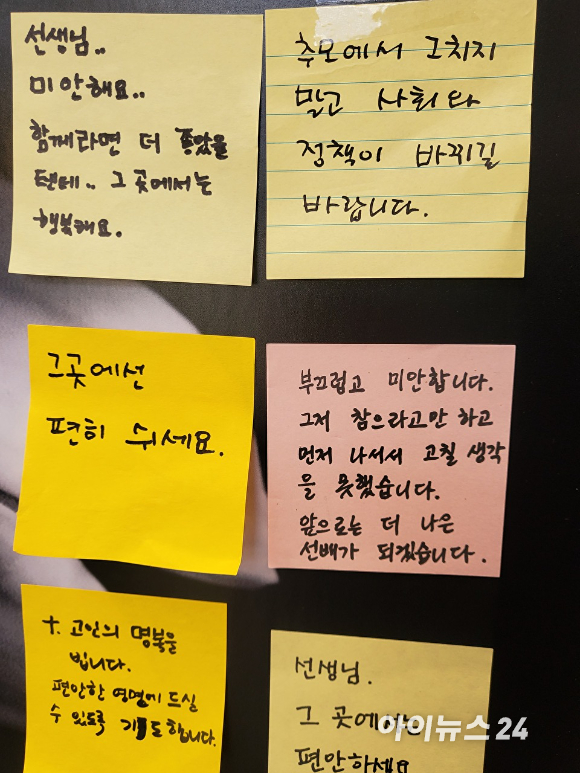 선생님..
미안해요..
함께라면 더 좋았을
텐데.. 그 곳에서는
행복해요.
추모에서 그치지
말고 사회와
정책이 바뀌길
바랍니다.
그곳에선
편히 쉬세요.
부끄럽고 미안합니다.
그저 참으라고만 하고
먼저 나서서 고칠 생각
을 못했습니다.
앞으로는 더 나은
선배가 되겠습니다.
✝. 고인의 명복을
빕니다.
편안한 영면에 드실
수 있도록 기도합니다.
선생님.
그 곳에서는
편안하세요
아이뉴스24